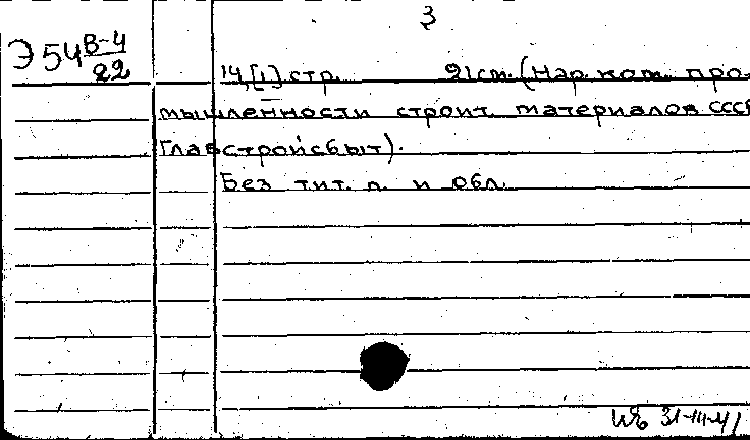 3
Э 54 В-4/22
14,[1] стр. 21см. (Нар. ком. про
мышленности строит. материалов СССР
Главстройсбыт).
Без тит. л. и обл.
31-III-41